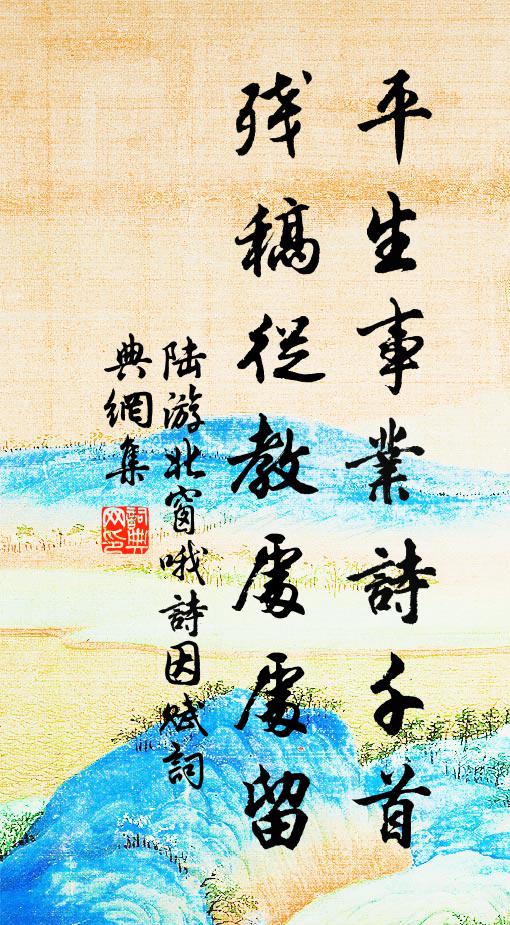 平生事業詩千首
残稿從教處處留
陆游北窗哦詩因赋詞
典網集
詞典网印